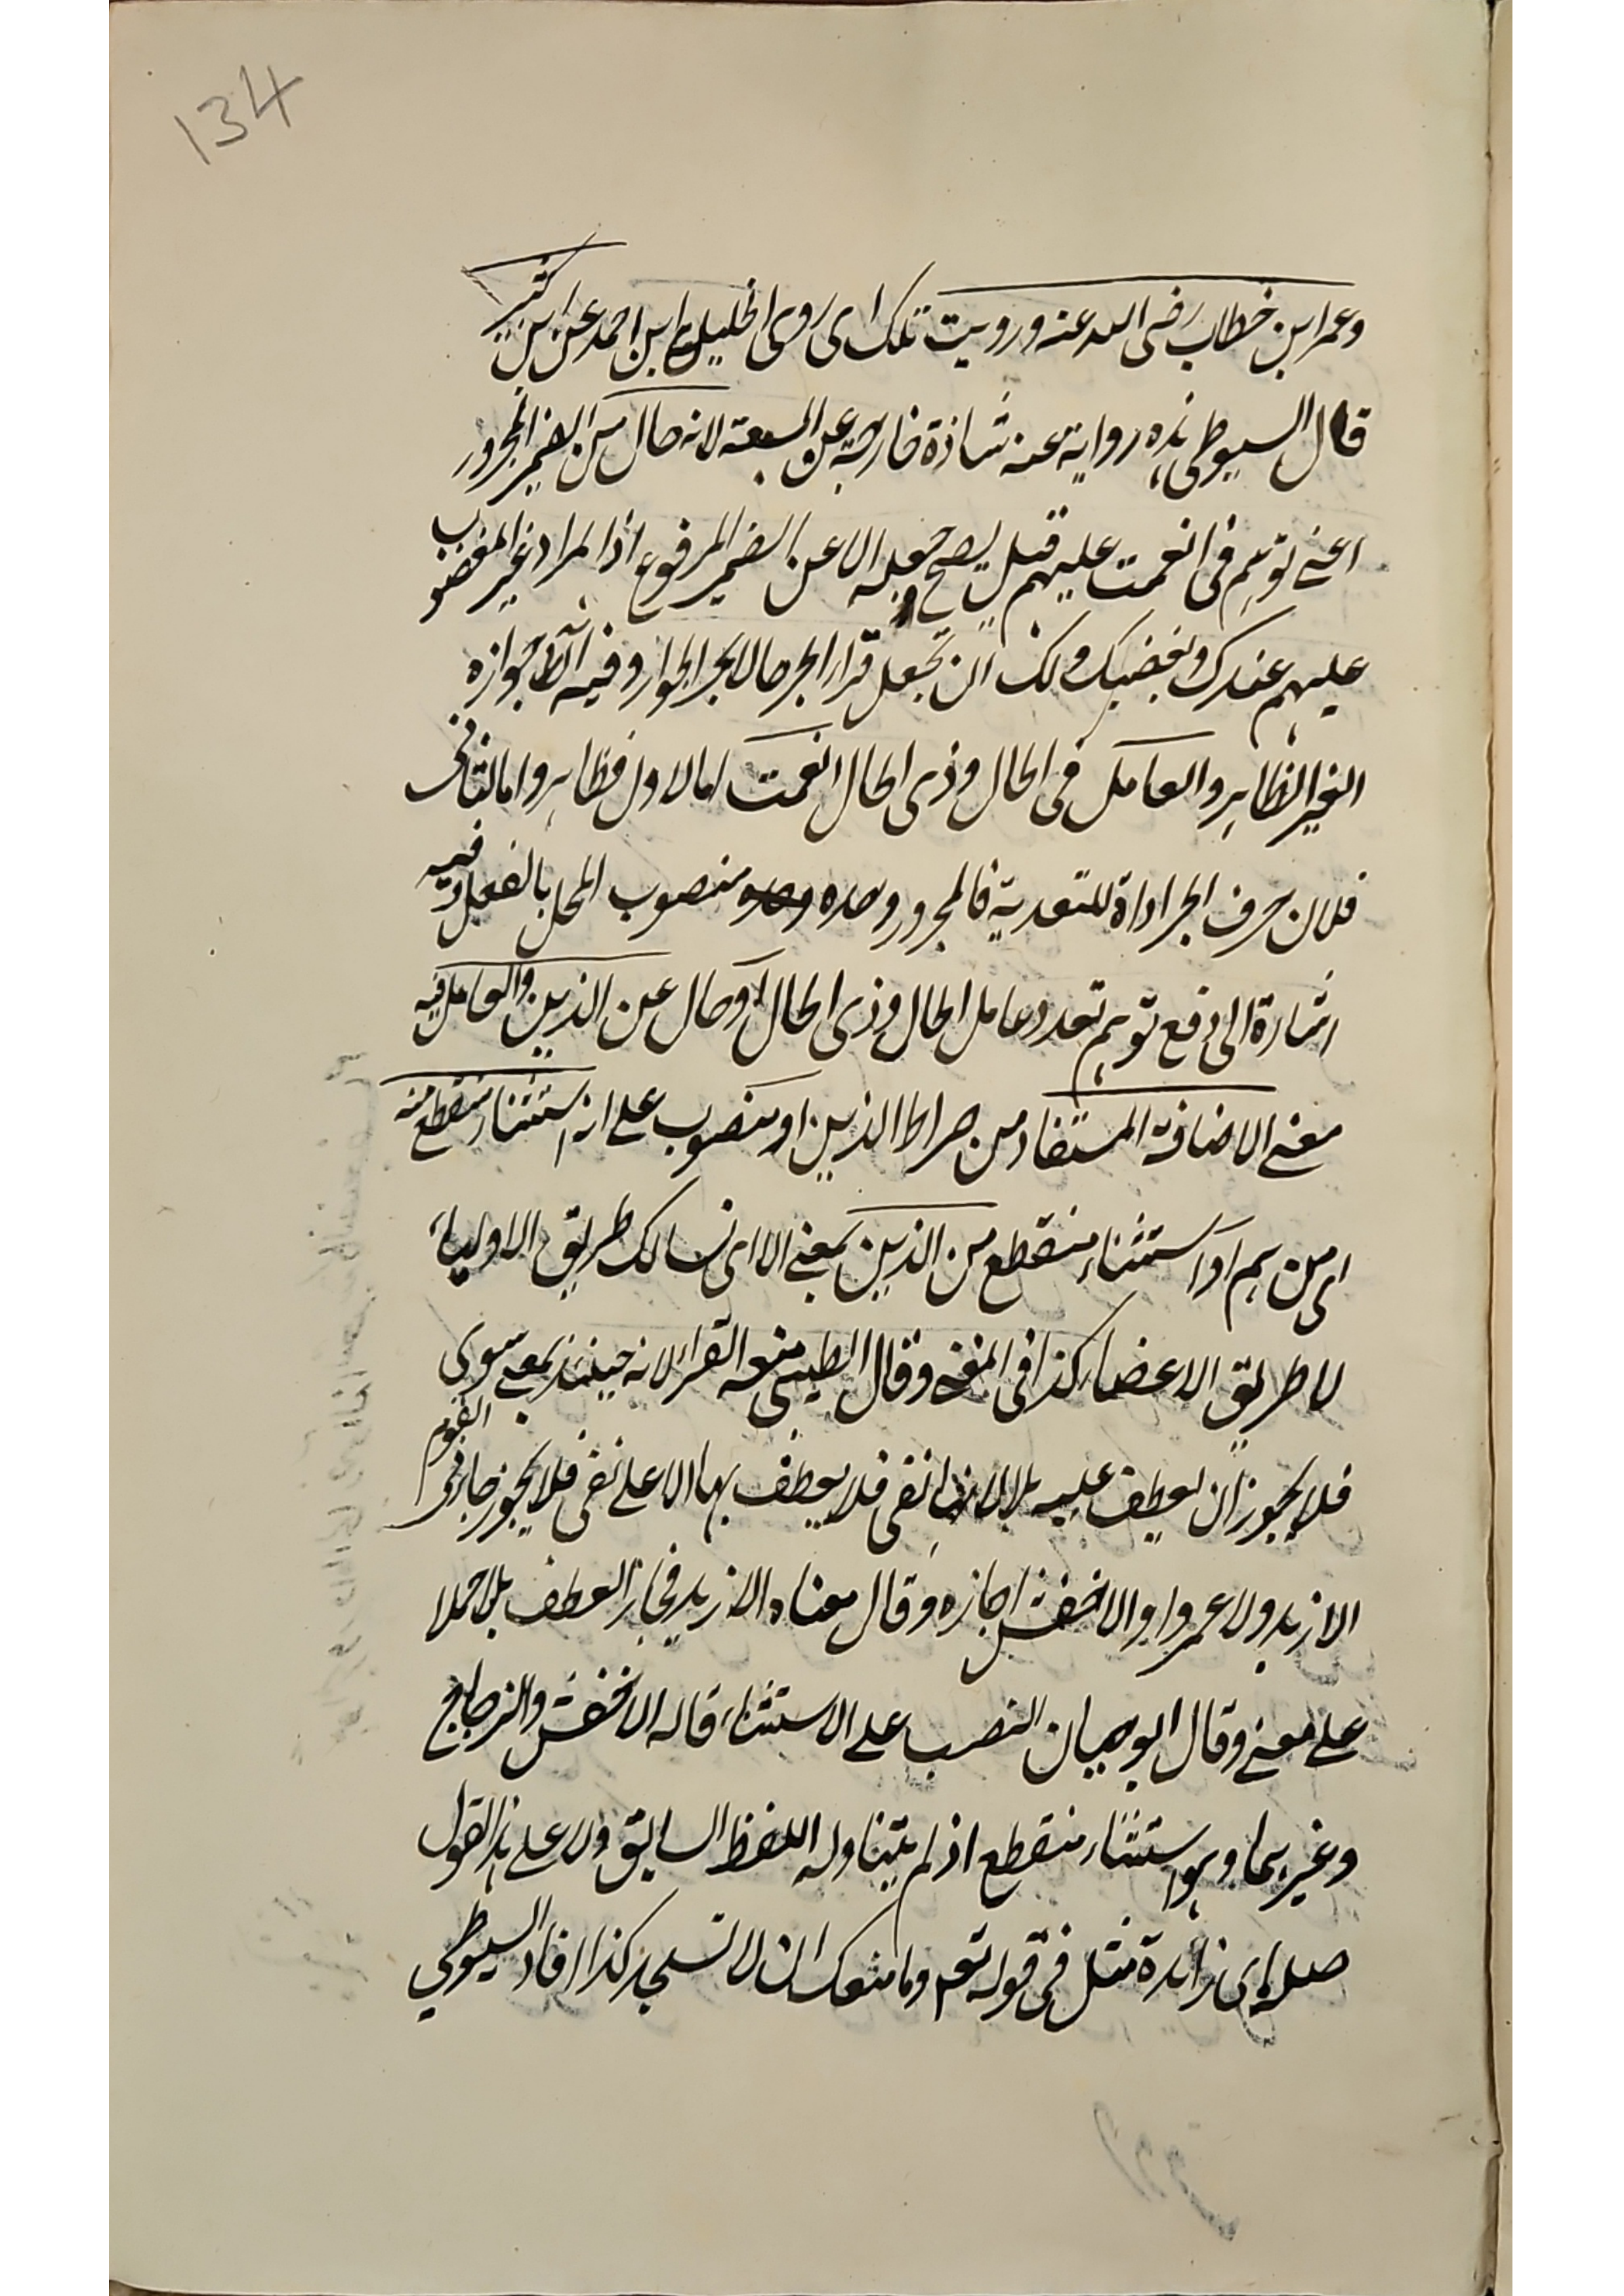 134
وعمر ابن خطاب رضى الله عنه ورويت تلك اى روى الخليل ابن احمد عن ابن كثير
قال السيوطى هذه رواية عنه شاذة خارجة عن السبعة لانه حال من الضمير المجرور
اعنى توهم فى انعمت عليهم قيل يصح جعله الا عن الضمير المرفوع اذا المراد غير المغضوب
عليهم عندك وبغضبك ولك ان تجعل قراء الجر حالا بجر الجوار وفيه جوازه
الغير الظاهر والعامل فى الحال وذى الحال انعمت اما الاول فظاهر واما الثانى
فلان حرف الجر اداة للتعدية فالمجرور وحده منصوب المحل بالفعل وفيه
اشارة الى دفع توهم تعدد عامل الحال وذى الحال او حال عن الذين والعامل فيه
معنى الاضافة المستفاد من صراط الذين او منصوب على انه استثناء منقطع منه
اى من هم او استثناء منقطع من الذين بمعنى الا اى نسالك طريق الاولياء
لا طريق الاعضاء كذا فى المغنى وقال الطيبى منعه الفراء لانه حينئذ بمعنى سوى
فلا يجوز ان يعطف عليه بلا لانها نفى فلا يعطف بها الا على نفى فلا يجوز جاءنى القوم
الا زيد ولا عمروا والاخفش اجازه وقال معناه الا زيد فجاز العطف بلا حملا
على معنى وقال ابو حيان النصب على الاستثناء قاله الاخفش والزجاج
وغيرهما وهو استثناء منقطع اذ لم يتناوله اللفظ السابق ولا على هذا القول
صلة اى زائدة مثل فى قوله تعم وما منعك ان لا تسجد كذا افاد السيوطي